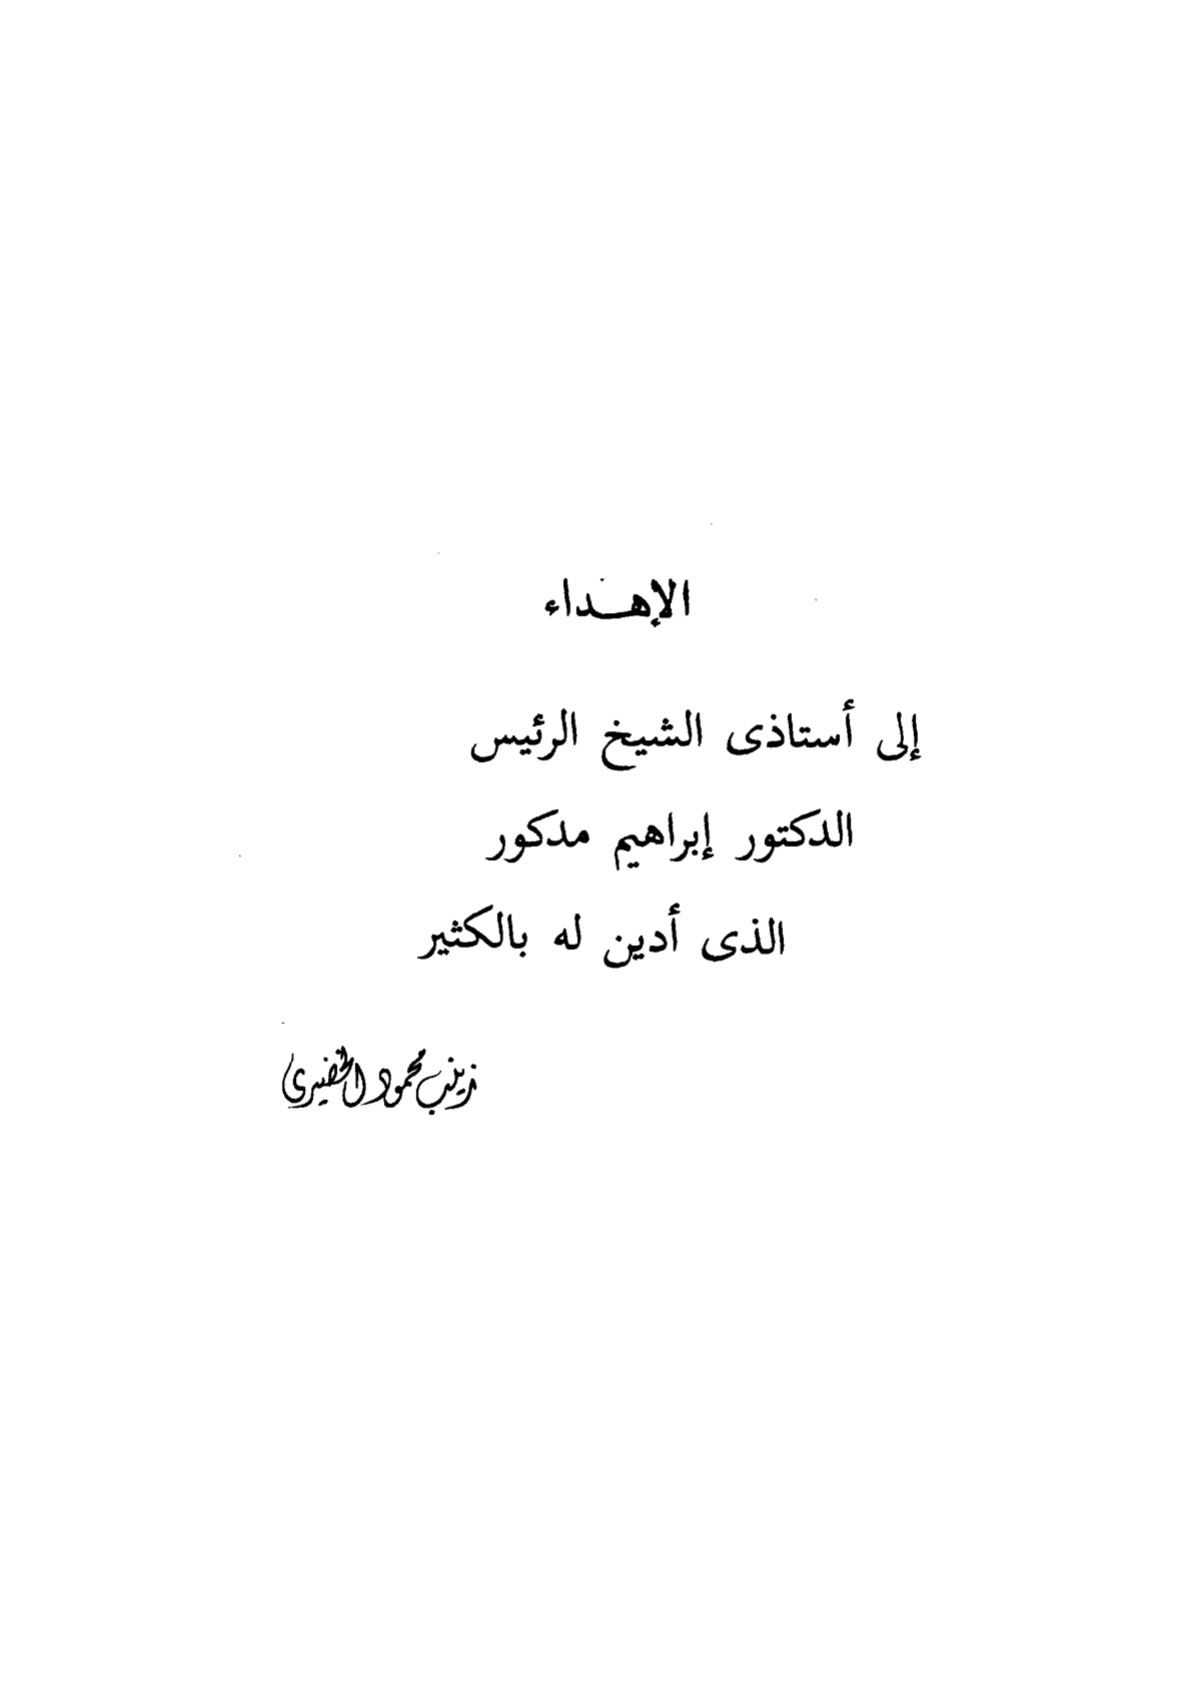 الإهداء
إلى أستاذى الشيخ الرئيس
الدكتور إبراهيم مدكور
الذى أدين له بالكثير
زينب محمود الخضيرى